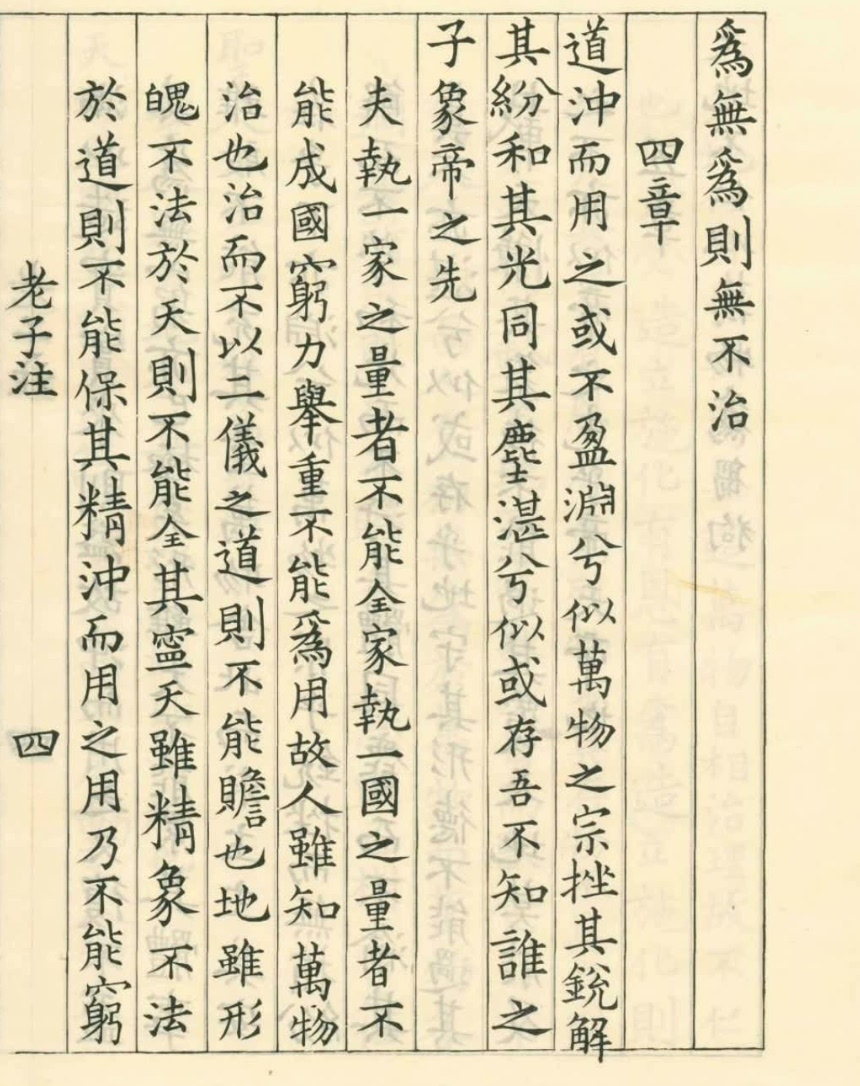 爲無爲則無不治
四章
道沖而用之或不盈淵兮似萬物之宗挫其銳解
其紛和其光同其塵湛兮似或存吾不知誰之
子象帝之先
夫執一家之量者不能全家執一國之量者不
能成國窮力舉重不能爲用故人雖知萬物
治也治而不以二儀之道則不能贍也地雖形
魄不法於天則不能全其寍天雖精象不法
於道則不能保其精沖而用之用乃不能窮
老子注 四